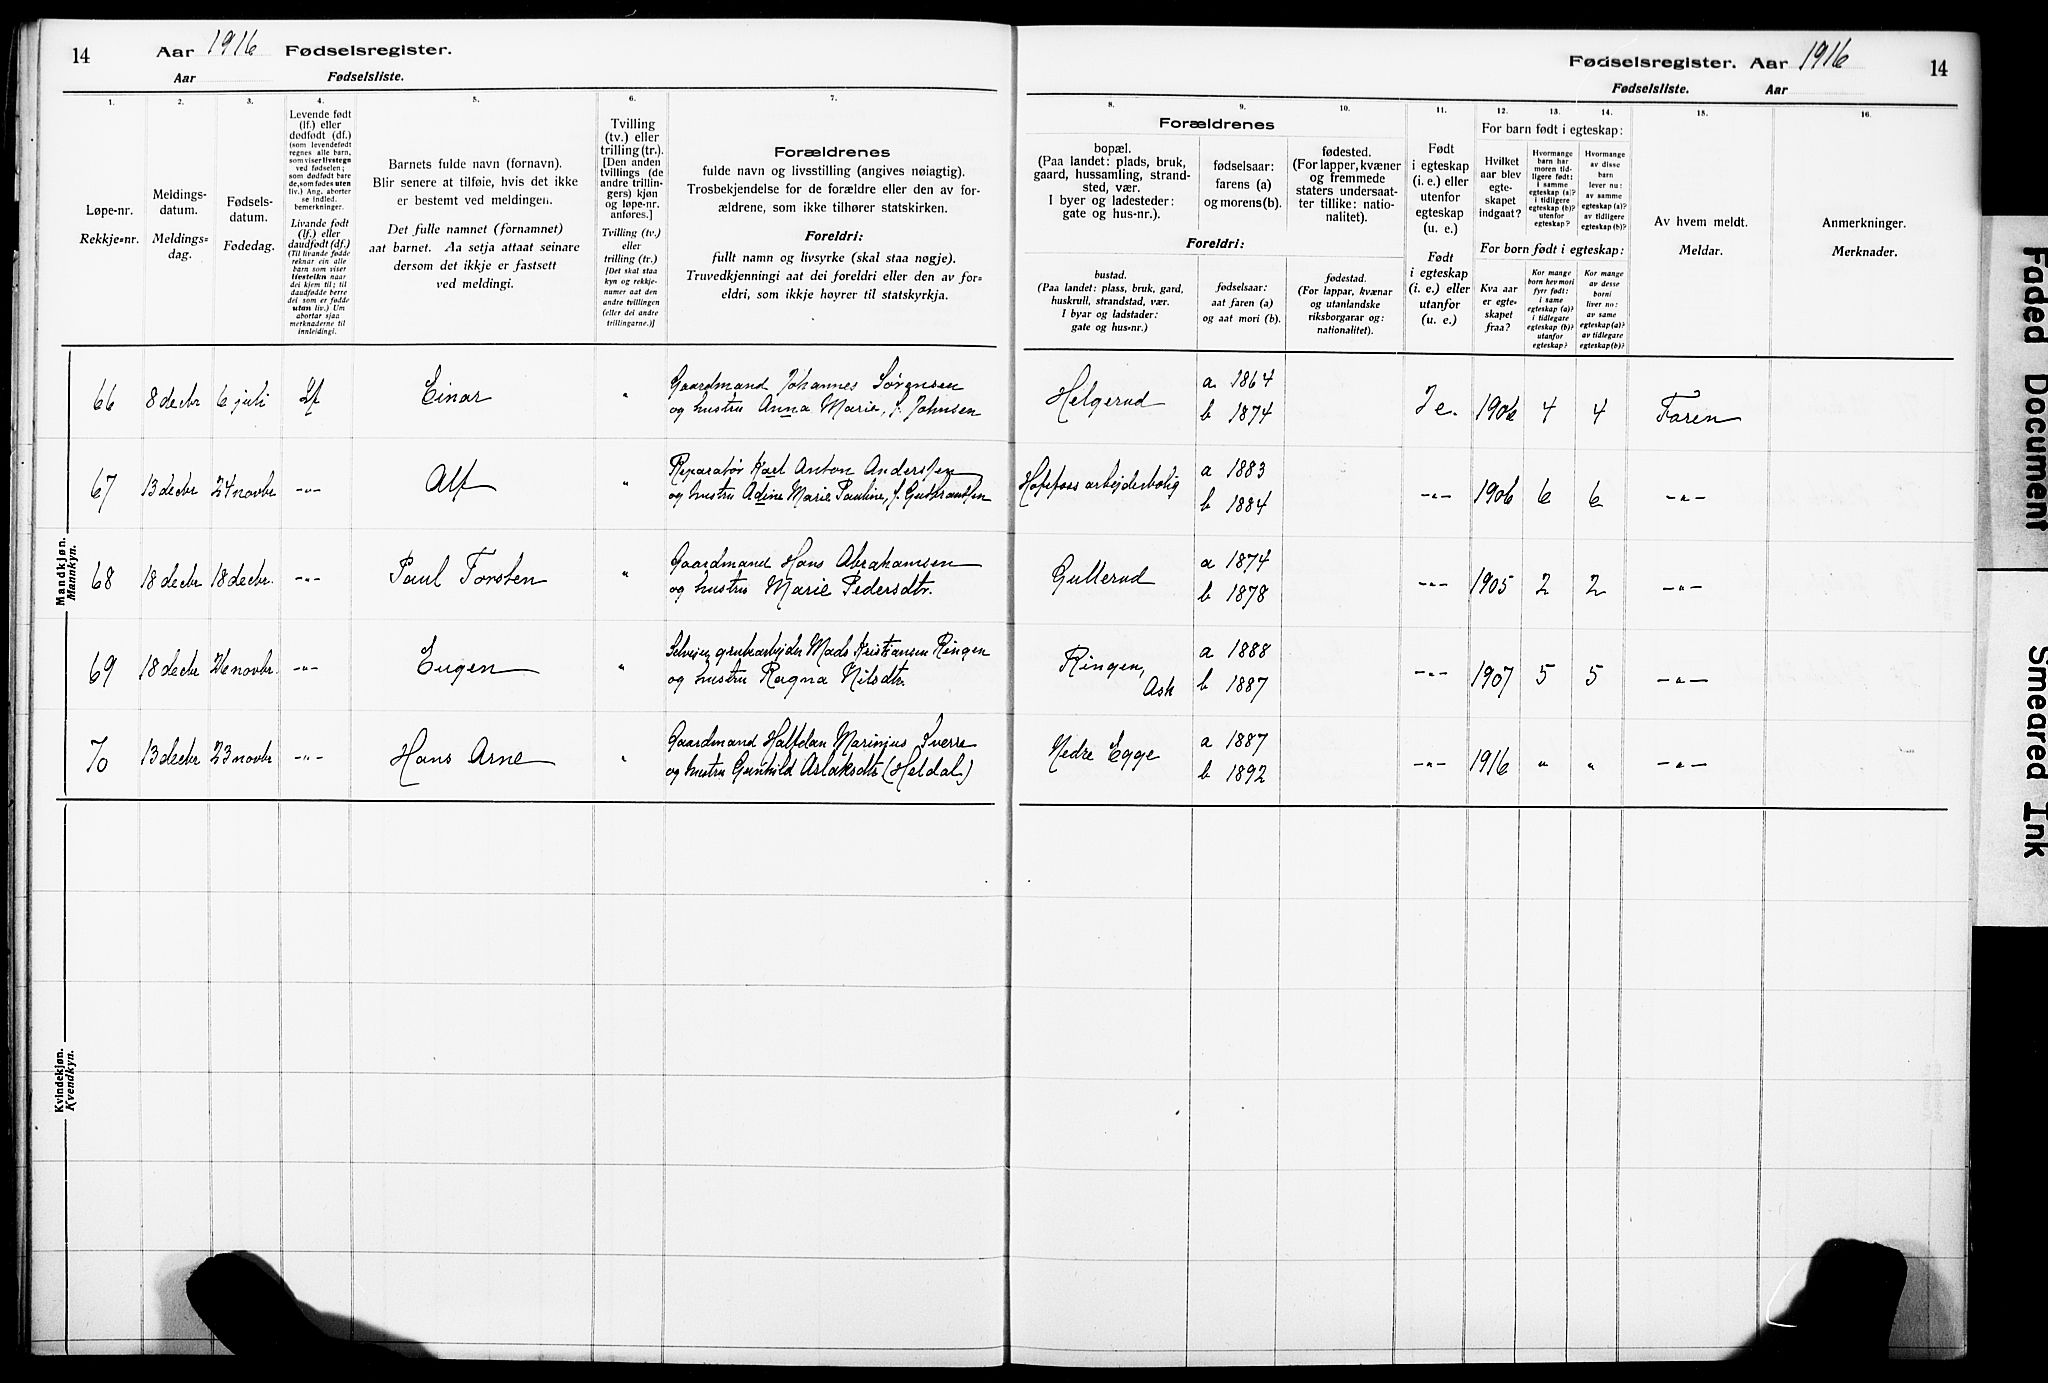 14 Aar 1916 Fødselsregister.
Aar Fødselsliste.
Fødselsregister. Aar 1916 14
Fødselsliste. Aar
1.
Løpe-nr.
Rekkje=nr.
2.
Meldings-
datum.
Meldings=
dag.
3.
Fødsels-
datum.
Fødedag.
4.
Levende født
(lf.) eller
dødfødt (df.)
(som levendefødt
regnes alle barn,
som viser livstegn
ved fødselen;
som dødfødt bare
de, som fødes uten
liv.) Ang. aborter
se indled.
bemerkninger.
Livande født
(lf.) eller
daudfødt (df.)
(Til livande fødde
reknar ein alle
barn som viser
livsteikn naar
dei kjem til; til
daudfødde berre
dei som er fødde
utan liv.) Um
abortar sjaa
merknaderne til
innleidingi.
5.
Barnets fulde navn (fornavn).
Blir senere at tilføie, hvis det ikke
er bestemt ved meldingen.
Det fulle namnet (fornamnet)
aat barnet. Aa setja attaat seinare
dersom det ikkje er fastsett
ved meldingi.
6.
Tvilling
(tv.) eller
trilling (tr.).
[Den anden
tvillings (de
andre trillin-
gers) kjøn
og løpe-nr.
anføres.]
Tvilling (tv.)
eller
trilling (tr.)
[Det skal staa
kyn og rekkje-
numer aat den
andre tvillingen
(eller dei andre
trillingarne.)]
7.
Forældrenes
fulde navn og livsstilling (angives nøiagtig).
Trosbekjendelse for de forældre eller den av for-
ældrene, som ikke tilhører statskirken.
Foreldri:
fullt namn og livsyrke (skal staa nøgje).
Truvedkjenningi aat dei foreldri eller den av for=
eldri, som ikkje høyrer til statskyrkja.
Forældrenes
8.
bopæl.
(Paa landet: plads, bruk,
gaard, hussamling, strand-
sted, vær.
I byer og ladesteder:
gate og hus-nr.).
9.
fødselsaar:
farens (a)
og morens (b).
10.
fødested.
(For lapper, kvæner
og fremmede
staters undersaat-
ter tillike: natio-
nalitet).
Foreldri:
bustad.
(Paa landet: plass, bruk, gard,
huskrull, strandstad, vær.
I byar og ladstader:
gate og hus=nr.)
fødselsaar:
aat faren (a)
og aat mori (b).
fødestad.
(For lappar, kvænar
og utanlandske
riksborgarar og:
nationalitet).
11.
Født
i egteskap
(i. e.) eller
utenfor
egteskap
(u. e.)
Født
i egteskap
(i. e.) eller
utanfor
(u. e.)
For barn født i egteskap:
12.
Hvilket
aar blev
egte-
skapet
indgaat?
13.
Hvormange
barn har
moren tid-
ligere født:
i samme
egteskap (a)?
i tidligere
egteskap (b)?
utenfor
egteskap?
14.
Hvormange
av disse
barn
lever nu:
av samme
egteskap (a)?
av tidligere
egteskap (b)?
For born født i egteskap:
Kva aar
er egte-
skapet
fraa?
Kor mange
born hev mori
fyrr født:
i same
egteskap (a)?
i tidlegare
egteskap (b)?
utanfor
egteskap?
Kor mange
av desse
borni
liver no:
av same
egteskap (a)?
av tidlegare
egteskap (b)?
15.
Av hvem meldt.
Meldar.
16.
Anmerkninger.
Merknader.
Mandkjøn.
Mannkyn.
66 8 decbr 6 juli Lf Einar " Gaardmand Johannes Sørensen
og hustru Anna Marie, f. Johnsen Helgerud a 1864
b 1874 I e. 1906 4 4 Faren
67 13 decbr 24 novbr -"- Alf " Reparatør Karl Anton Anderssen
og hustru Adine Marie Pauline, f. Gulbrandsen Hofsfoss arbejderbolig a 1883
b 1884 -"- 1906 6 6 -"-
68 18 decbr 18 decbr. -"- Paul Torsten " Gaardmand Hans Abrahamsen
og hustru Marie Pedersdtr. Gullerud a 1874
b 1878 -"- 1905 2 2 -"-
69 18 decbr 26 novbr. -"- Eugen " Selveier, grubearbejder Mads Kristiansen Ringen
og hustru Ragna Nilsdtr. Ringen,
Ask a 1888
b 1887 -"- 1907 5 5 -"-
70 13 decbr 23 novbr -"- Hans Arne " Gaardmand Halfdan Marinius Sverre
og hustru Gunhild Aslaksdtr (Heldal) Nedre Egge a 1887
b 1892 -"- 1916 " " -"-
Kvindekjøn.
Kvendkyn.
Faded Document
Smeared Ink